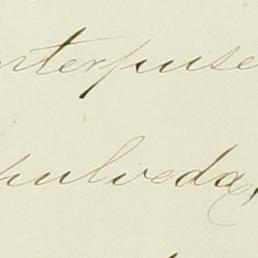 nterpuse
pulveda,